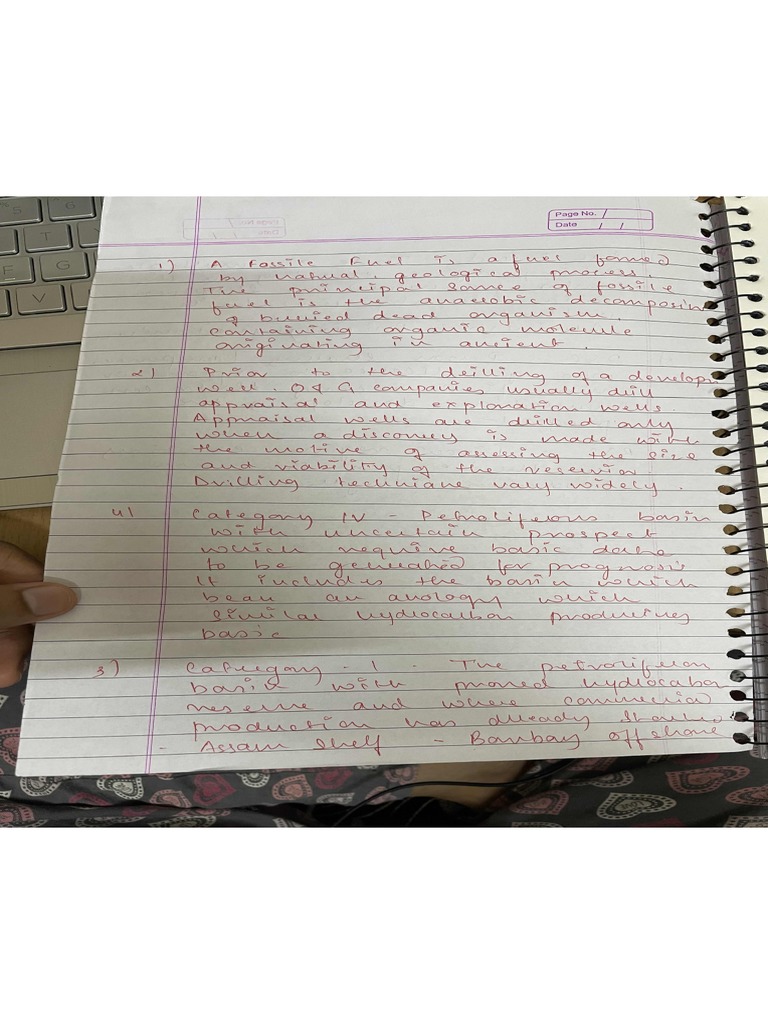 Page No. /
Date / /
1) A Fossile Fuel is a fuel formed
by natural, geological process.
The principal source of fossile
fuel is the anaerobic decomposin
of burried dead organism.
containing organic molecule
originating in ancient.
2) Prior to the drilling of a develop
well. O & G companies usually drill
appraisal and exploration wells.
Appraisal wells are drilled only
when a discovery is made with
the motive of assessing the size
and viability of the reservior
Drilling technique vary widely.
4) Category IV - Petroliferous basin
with uncertain prospect
which require basic data
to be generated for prognosis
It includes the basin which
bear an anology which
similar hydrocarbon producing
basic
3) Category - I - The petrolifuon
basin with proved hydrocabo
reserve and where commercia
production has already started
- Assam Shelf - Bombay offshore